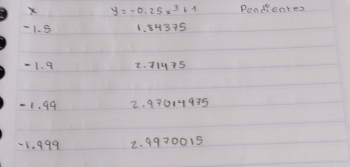 x y=-0.25x³+1 Pendientes
-1.5 1.84375
-1.9 2.71475
-1.99 2.97014975
-1.999 2.9970015